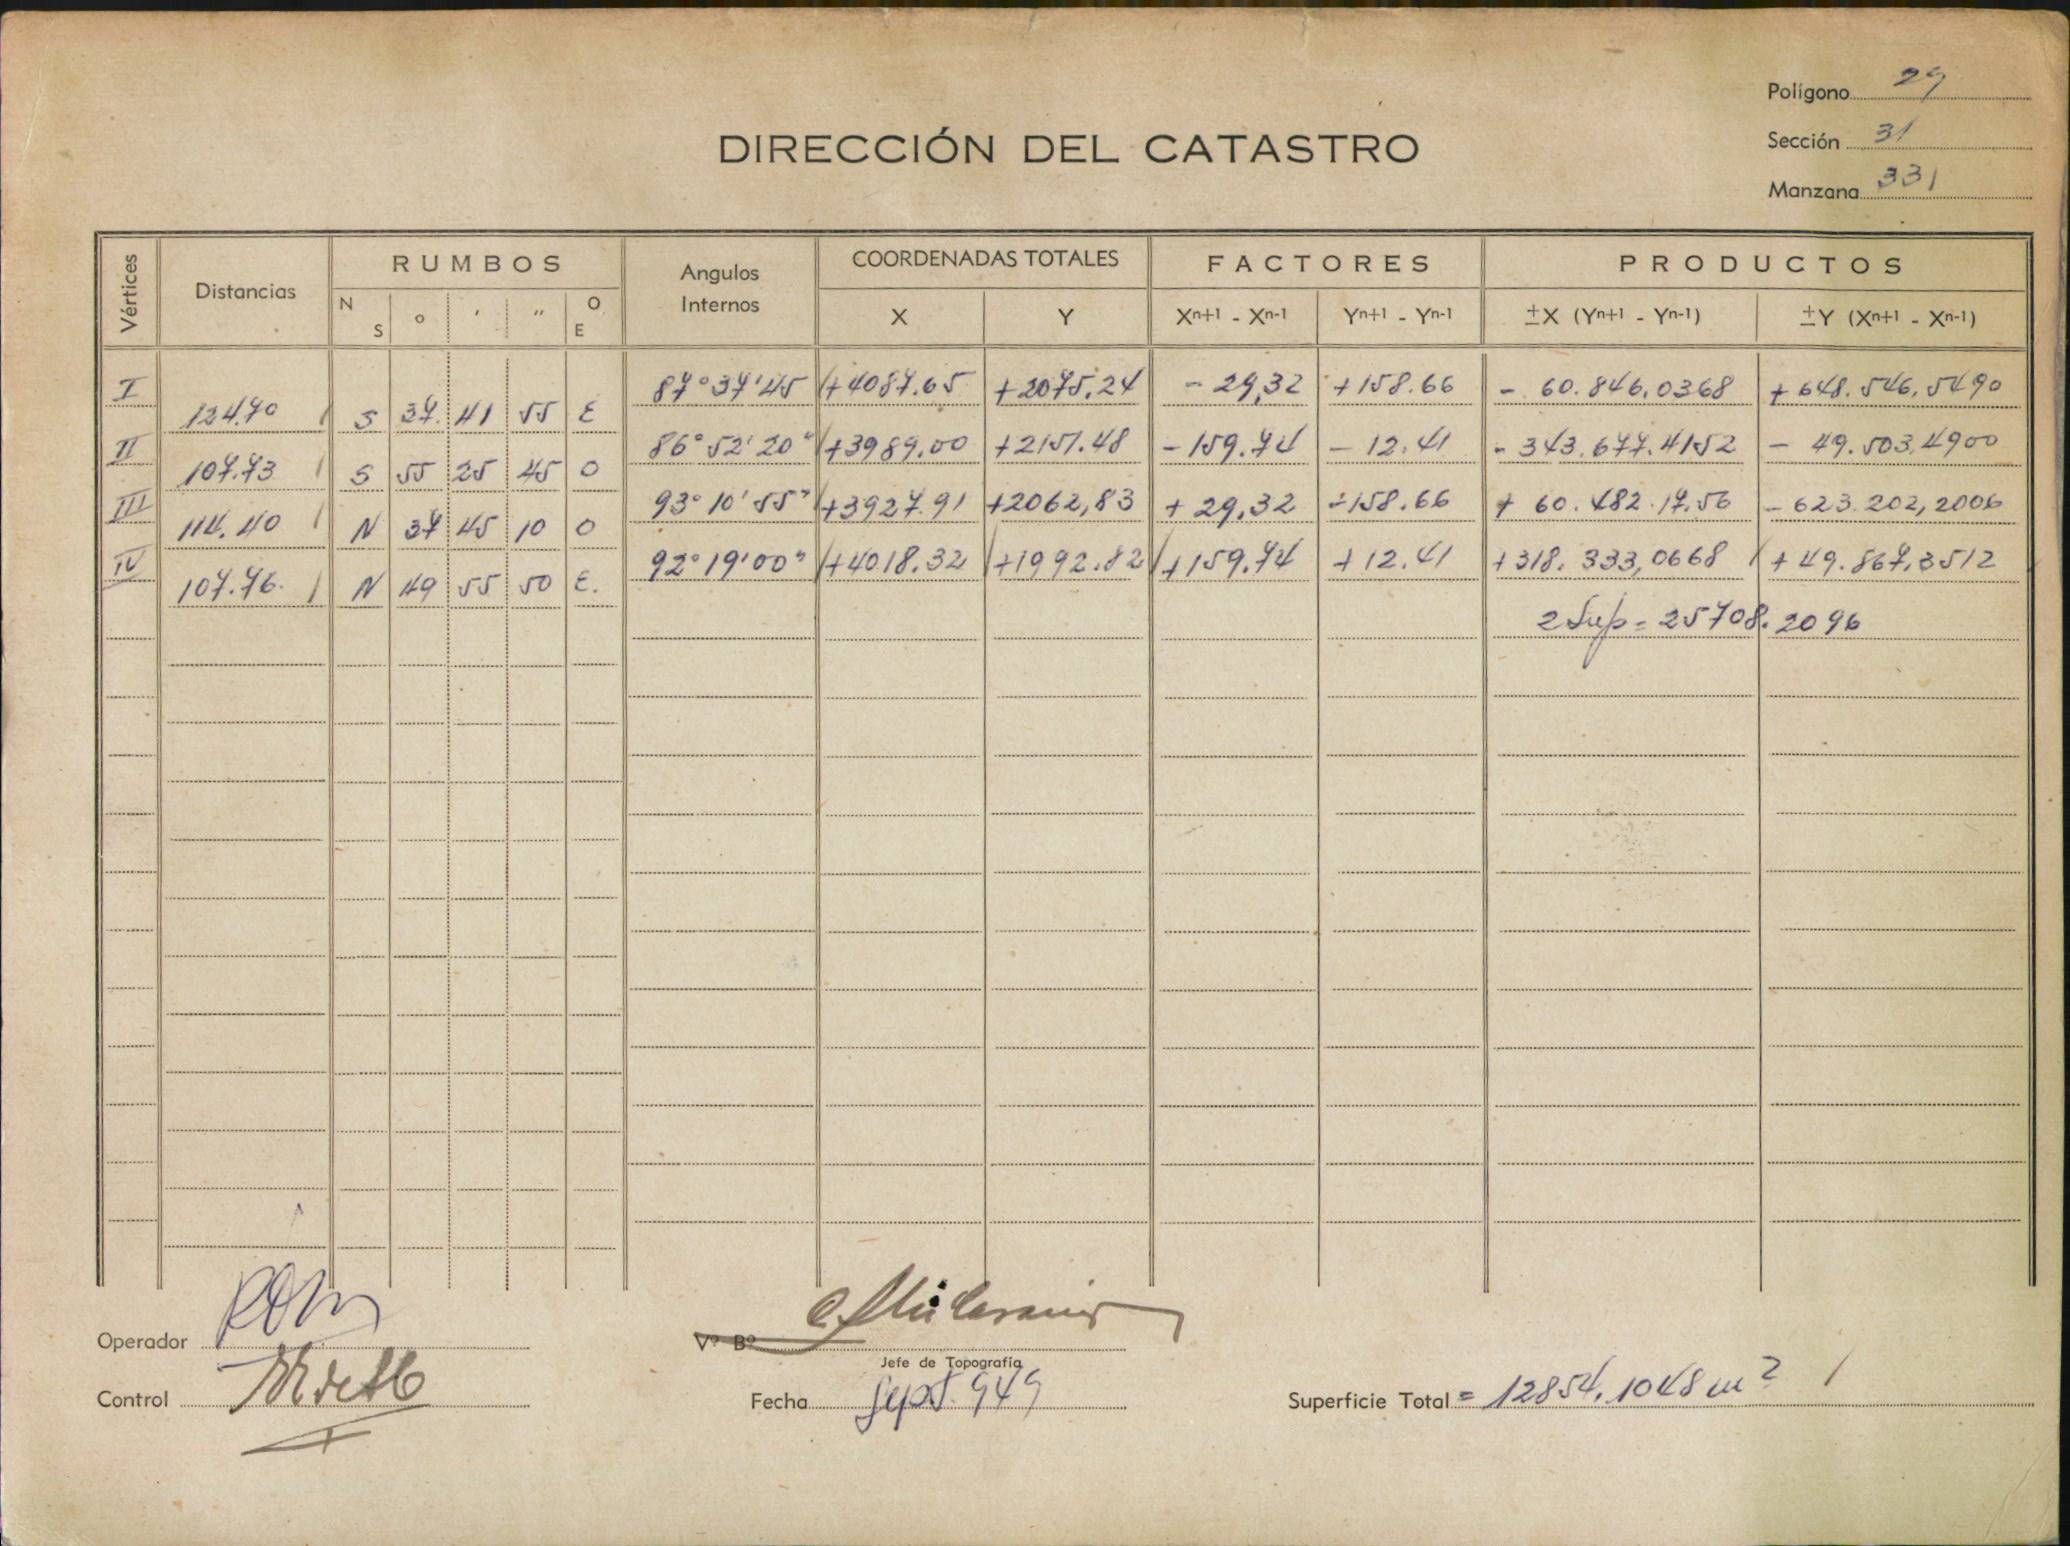 Polígono 29
DIRECCIÓN DEL CATASTRO
Sección 31
Manzana 331
Vértices Distancias RUMBOS Angulos Internos COORDENADAS TOTALES FACTORES PRODUCTOS
N S o ' " O E X Y Xn+1 - Xn-1 Yn+1 - Yn-1 ±X (Yn+1 - Yn-1) ±Y (Xn+1 - Xn-1)
I 87°37'45 +4087.65 +2075.24 - 29,32 +158.66 - 60.846,0368 + 648.546,5490
124.70 S 37. 41 55 E
II 86°52'20" +3989.00 +2151.48 -159.74 - 12.41 - 343.677.4152 - 49.503,4900
107.73 S 55 25 45 O
III 93°10'55" +3927.91 +2062,83 + 29,32 -158.66 + 60.482.17.56 - 623.202,2006
114.40 N 37 45 10 O
IV 92°19'00" +4018.32 +1992.82 +159.74 + 12.41 +318.333,0668 + 49.867,3512
107.76. N 49 55 50 E.
2 Sup = 25708.2096
Operador
Vº Bº
Jefe de Topografía
Control
Fecha Sept. 949
Superficie Total = 12854,1048 m²